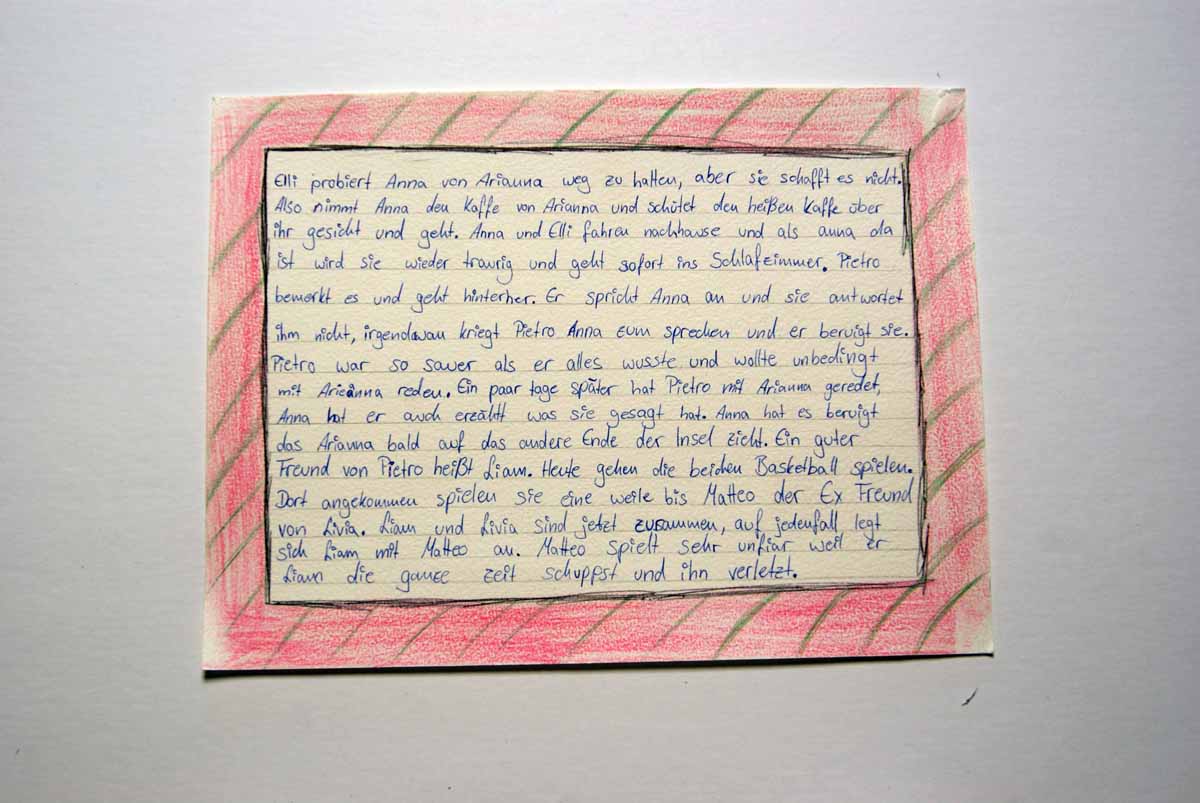 Elli probiert Anna von Arianna weg zu halten, aber sie schafft es nicht.
Also nimmt Anna den Kaffe von Arianna und schütet den heißen Kaffe über
ihr gesicht und geht. Anna und Elli fahren nachhause und als anna da
ist wird sie wieder traurig und geht sofort ins Schlafzimmer. Pietro
bemerkt es und geht hinterher. Er spricht Anna an und sie antwortet
ihm nicht, irgendwan kriegt Pietro Anna zum sprechen und er beruigt sie.
Pietro war so sauer als er alles wusste und wollte unbedingt
mit Arianna reden. Ein paar tage später hat Pietro mit Arianna geredet,
Anna hat er auch erzählt was sie gesagt hat. Anna hat es beruigt
das Arianna bald auf das andere Ende der Insel zieht. Ein guter
Freund von Pietro heißt Liam. Heute gehen die beiden Basketball spielen.
Dort angekommen spielen sie eine weile bis Matteo der Ex Freund
von Livia. Liam und Livia sind jetzt zusammen, auf jedenfall legt
sich Liam mit Matteo an. Matteo spielt sehr unfiar weil er
Liam die ganze zeit schuppst und ihn verletzt.